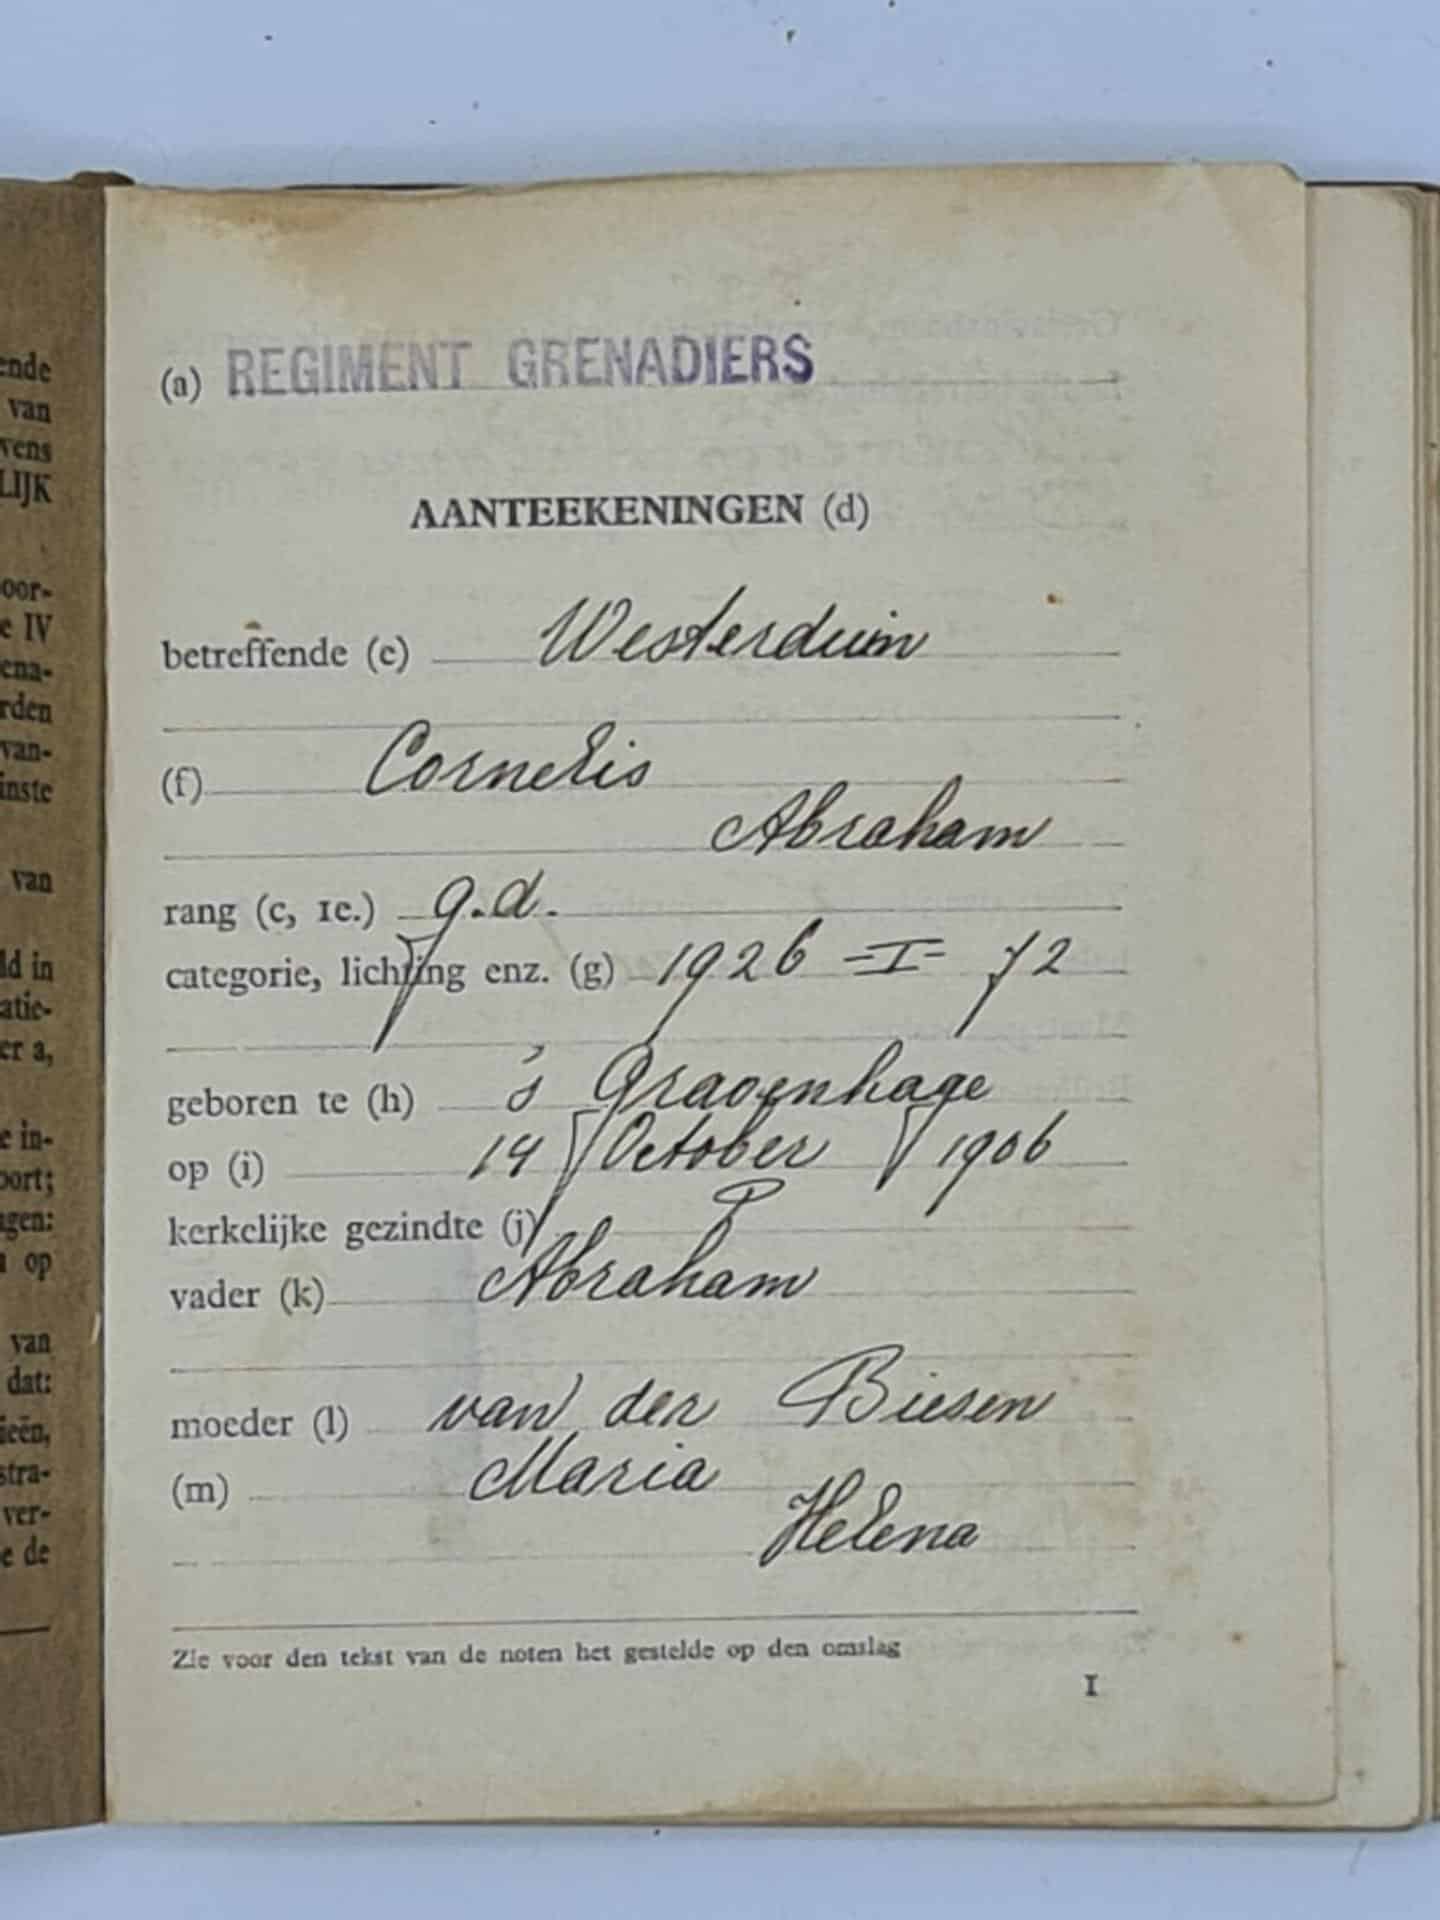 ende
van
vens
LIJK
oor-
e IV
ena-
rden
van-
inste
van
ld in
atie-
er a,
e in-
oort;
agen:
op
van
dat:
ieën,
stra-
ver-
e de
(a) REGIMENT GRENADIERS
AANTEEKENINGEN (d)
betreffende (e) Westerduin
(f) Cornelis
Abraham
rang (c, 1e.) g.d.
categorie, lichting enz. (g) 1926 -I- 72
geboren te (h) 's Gravenhage
op (i) 14 October 1906
kerkelijke gezindte (j) P
vader (k) Abraham
moeder (l) van der Biesen
(m) Maria
Helena
Zie voor den tekst van de noten het gestelde op den omslag
1